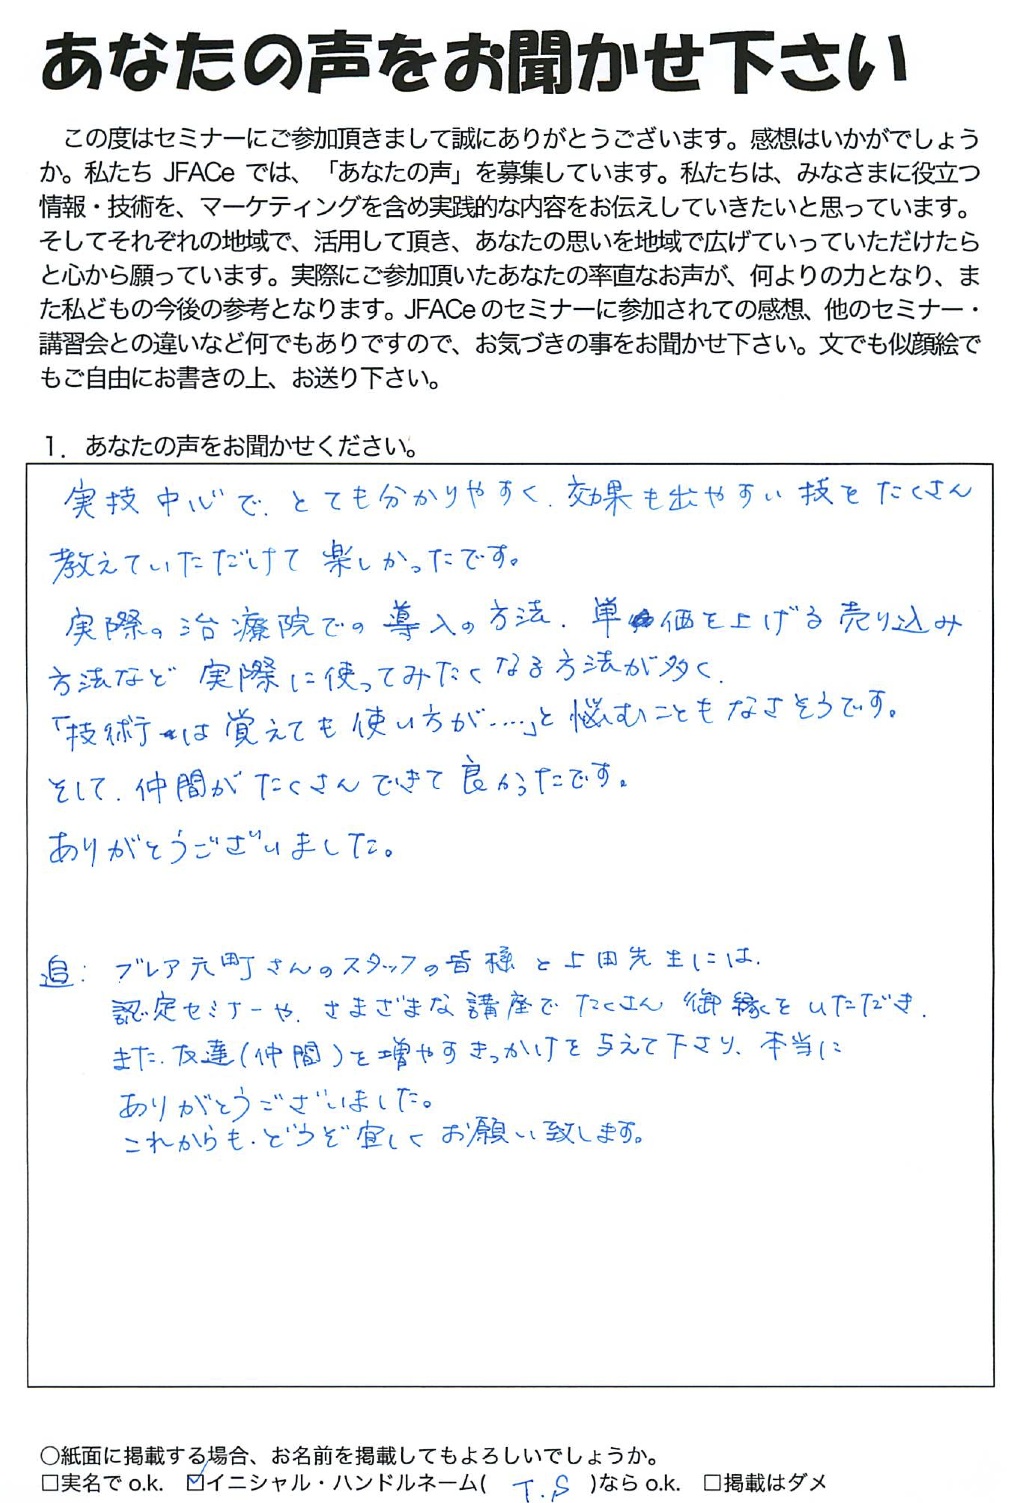 あなたの声をお聞かせ下さい
この度はセミナーにご参加頂きまして誠にありがとうございます。感想はいかがでしょう
か。私たち JFACe では、「あなたの声」を募集しています。私たちは、みなさまに役立つ
情報・技術を、マーケティングを含め実践的な内容をお伝えしていきたいと思っています。
そしてそれぞれの地域で、活用して頂き、あなたの思いを地域で広げていっていただけたら
と心から願っています。実際にご参加頂いたあなたの率直なお声が、何よりの力となり、ま
た私どもの今後の参考となります。JFACe のセミナーに参加されての感想、他のセミナー・
講習会との違いなど何でもありですので、お気づきの事をお聞かせ下さい。文でも似顔絵で
もご自由にお書きの上、お送り下さい。
1．あなたの声をお聞かせください。
実技中心で、とても分かりやすく、効果も出やすい技をたくさん
教えていただけて楽しかったです。
実際の治療院での導入の方法、単価を上げる売り込み
方法など実際に使ってみたくなる方法が多く、
「技術は覚えても使い方が……」と悩むこともなさそうです。
そして、仲間がたくさんできて良かったです。
ありがとうございました。
追：ブレア元町さんのスタッフの皆様と上田先生には、
認定セミナーや、さまざまな講座でたくさん御縁をいただき、
また、友達(仲間)を増やすきっかけを与えて下さり、本当に
ありがとうございました。
これからも、どうぞ宜しくお願い致します。
○紙面に掲載する場合、お名前を掲載してもよろしいでしょうか。
□実名で o.k. ☑イニシャル・ハンドルネーム( T.S )なら o.k. □掲載はダメ